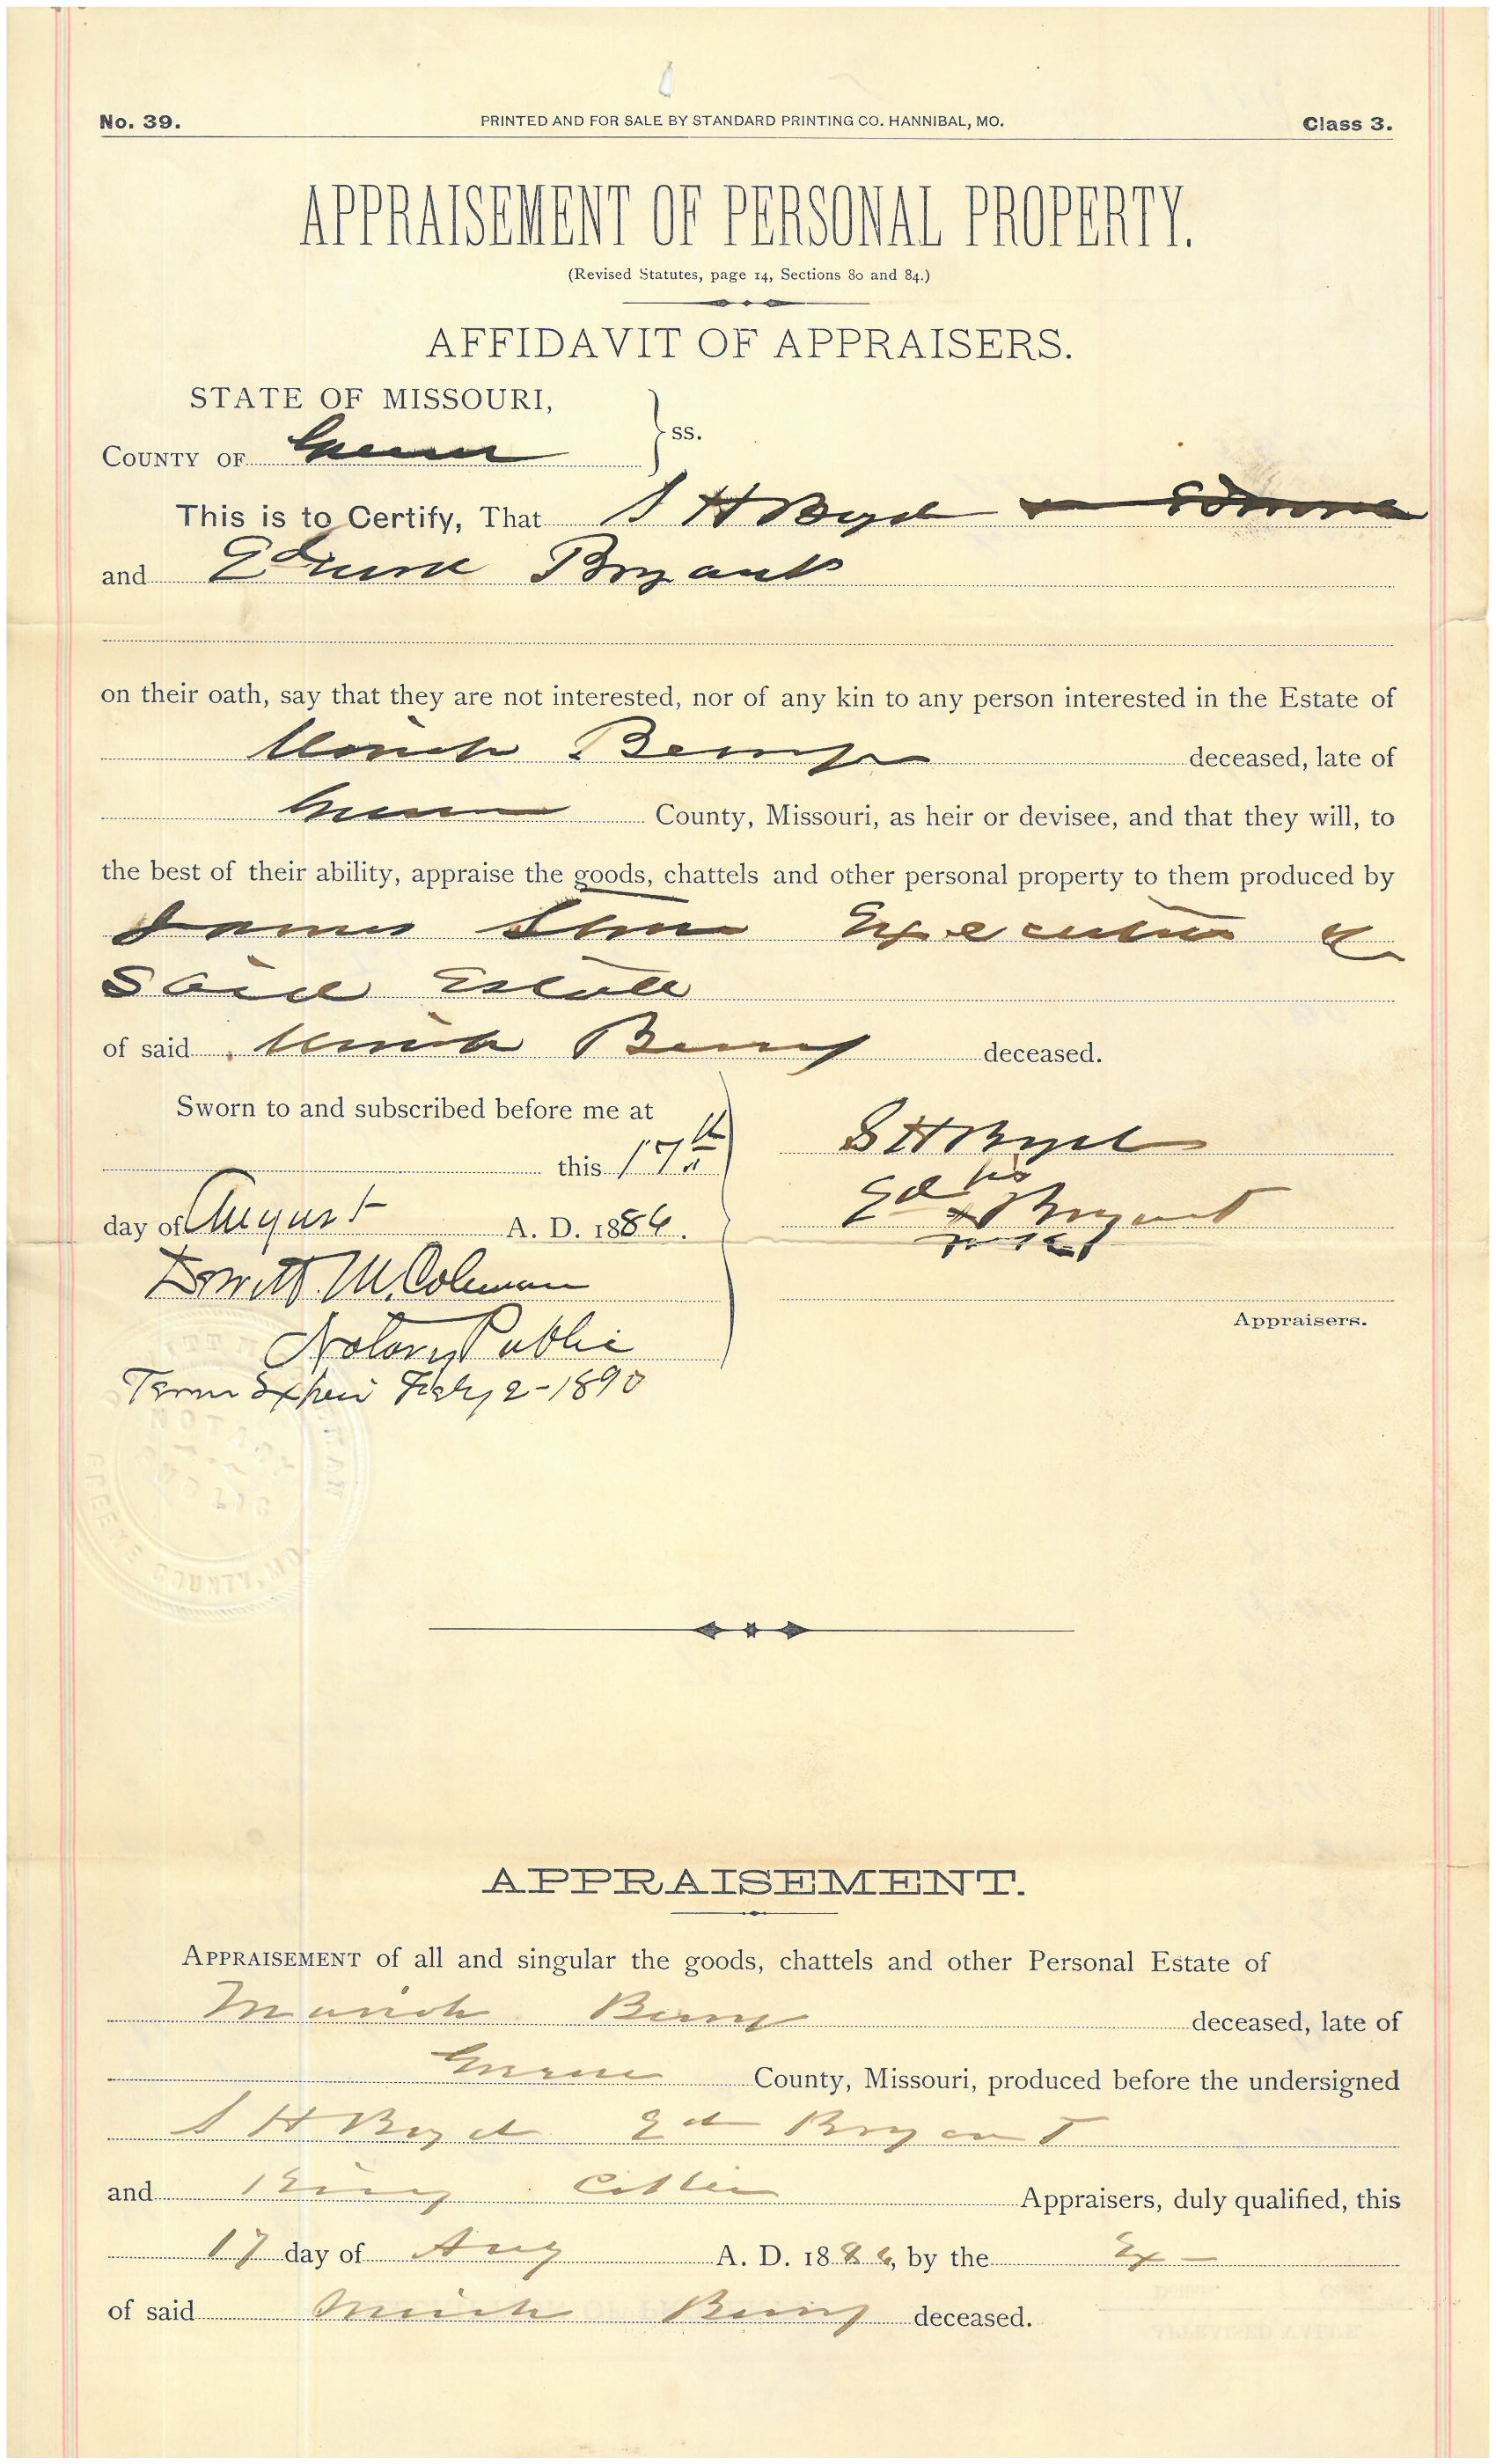 No. 39.
PRINTED AND FOR SALE BY STANDARD PRINTING CO. HANNIBAL, MO.
Class 3.
APPRAISEMENT OF PERSONAL PROPERTY.
(Revised Statutes, page 14, Sections 80 and 84.)
AFFIDAVIT OF APPRAISERS.
STATE OF MISSOURI,
COUNTY OF Greene } ss.
This is to Certify, That S H Boyd
and Edmund Bryant
on their oath, say that they are not interested, nor of any kin to any person interested in the Estate of
Berry deceased, late of
Greene County, Missouri, as heir or devisee, and that they will, to
the best of their ability, appraise the goods, chattels and other personal property to them produced by
James Stone Executor of
Said Estate
of said Berry deceased.
Sworn to and subscribed before me at
this 17th
day of August A. D. 1886.
Dewitt M. Coleman
Notary Public
Term Expires Feby 2-1890
S H Boyd
Ed his x Bryant
mark
Appraisers.
NOTARY
PUBLIC
GREENE COUNTY, MO.
APPRAISEMENT.
APPRAISEMENT of all and singular the goods, chattels and other Personal Estate of
Berry deceased, late of
Greene County, Missouri, produced before the undersigned
S H Boyd Ed Bryant
and Appraisers, duly qualified, this
17 day of Aug A. D. 1886, by the Ex-
of said Berry deceased.